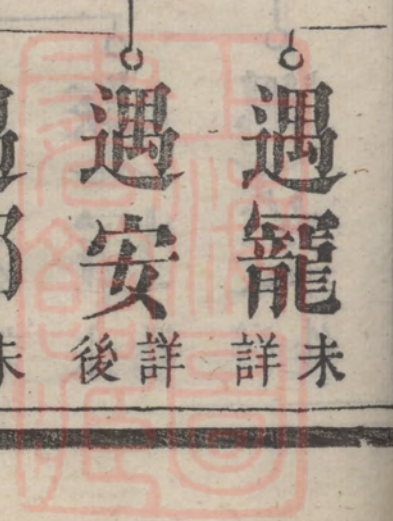 遇寵
未詳
遇安
詳後
未